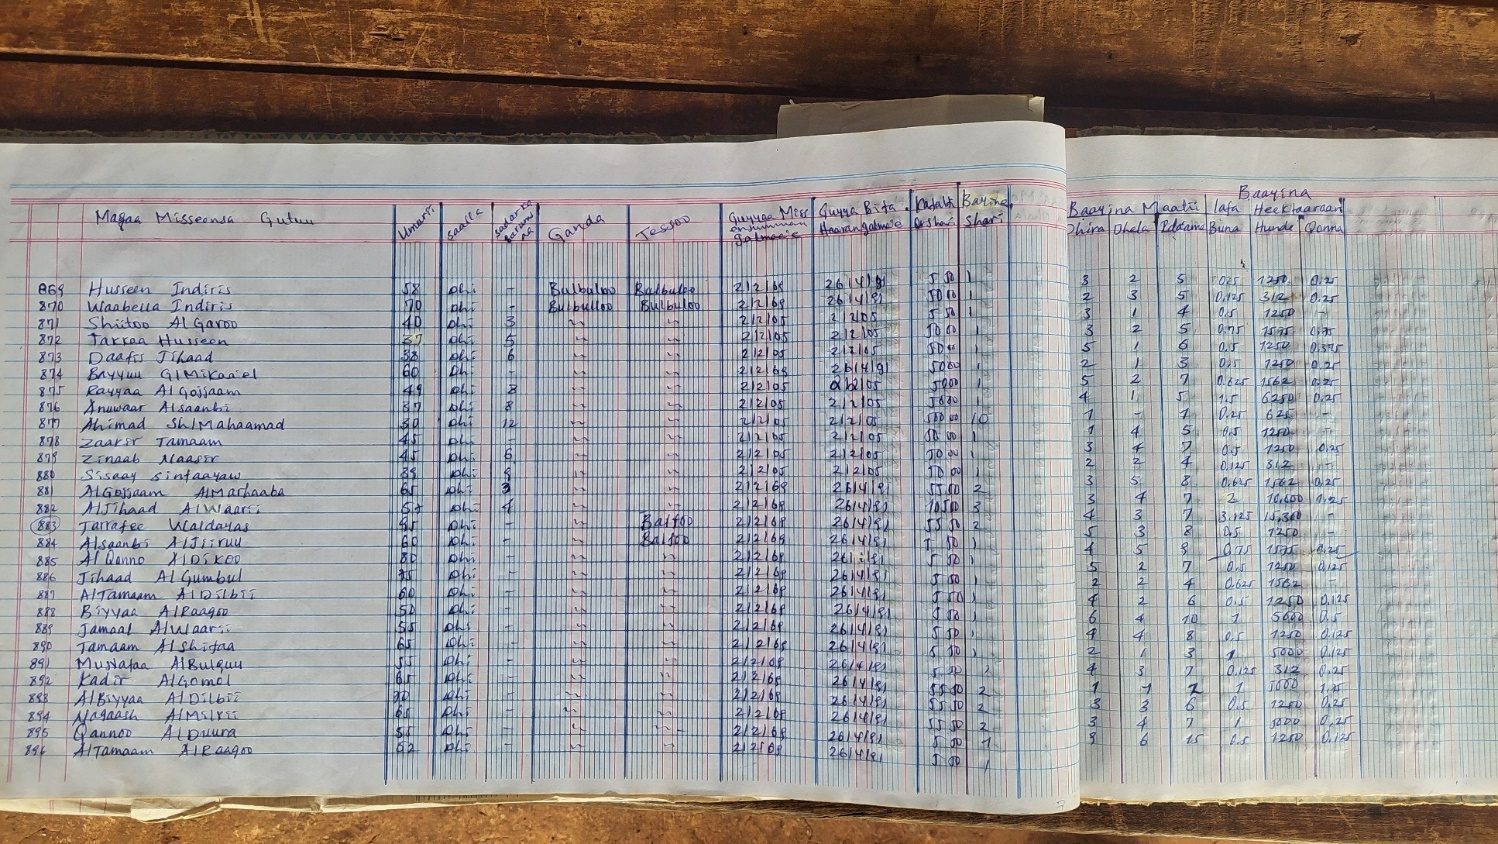 Magaa Misseensa Gutuu Umurii Saala Ganda Tessoo
Baayina
Baayina Maatii lafa Heektaaraan
Dhiira Dhala Idaama Buna Hunde Qonna
869 Husseen Indiris 58 Dhi - Bulbuloo Bulbuloo 2/2/68 26/4/91 5 50 1 3 2 5 0,25 1250 0,25
870 Waabella Indiris 70 Dhi - Bulbulloo Bulbuloo 2/2/68 26/4/91 50 00 1 2 3 5 0,125 312 0,25
871 Shiitoo AlGaroo 40 Dhi 3 " " 2/2/05 2/2/05 5 50 1 3 1 4 0,5 1250 -
872 Jarraa Husseen 37 Dhi 5 " " 2/2/05 2/2/05 50 00 1 3 2 5 0,75
873 Daafis Jihaad 38 Dhi 6 " " 2/2/05 2/2/05 50 00 1 5 1 6 0,5 1250 0,375
874 Bayyuu G/Mikaa'el 60 Dhi - " " 2/2/68 26/4/91 50 00 1 2 1 3 0,5 1250 0,25
875 Rayyaa AlGojjaam 49 Dhi 8 " " 2/2/05 2/2/05 5000 1 5 2 7 0,625 1562 0,25
876 Anuwaar Alsaanbi 37 Dhi 8 " " 2/2/05 2/2/05 5000 1 4 1 5 1,5 6250 0,25
877 Ahimad Sh/Mahaamad 30 Dhi 12 " " 2/2/05 2/2/05 500 00 10 1 - 1 0,25 625 -
878 Zaakir Tamaam 45 Dhi - " " 2/2/05 2/2/05 50 00 1 1 4 5 0,5 1250 -
879 Zinaab Naasir 45 Dhi 6 " " 2/2/05 2/2/05 50 00 1 3 4 7 0,5 1250 0,25
880 Sisaay sintaayaw 39 Dhi 9 " " 2/2/05 2/2/05 50 00 1 2 2 4 0,125 312 -
881 AlGojjaam AlMarhaaba 65 Dhi 3 " " 2/2/68 26/4/91 55 50 2 3 5 8 0,625 1562 0,25
882 AlJihaad AlWaarii Dhi 4 " " 2/2/68 26/4/91 105 00 3 3 4 7 2 10,600 0,25
883 Tarrafee Waldayas Dhi - " Baffoo 2/2/68 26/4/91 55 50 2 4 3 7 3,125 15,300 -
884 Alsaanbi AlJiiruu 60 Dhi - " Baffoo 2/2/68 26/4/91 5 50 1 5 3 8 0,5 1250 -
885 AlQanno AlDikoo 80 Dhi - " " 2/2/68 5 50 1 4 5 9 0,75 0,25
886 Jihaad AlGumbul Dhi - " " 2/2/68 26/4/91 5 50 1 5 2 7 0,5 1250 0,125
887 AlTamaam AlDilbii 60 Dhi - " " 2/2/68 26/4/91 5 50 1 2 2 4 0,625 1562 -
888 Biyyaa AlRaagoo 50 Dhi - " " 2/2/68 26/4/91 5 50 1 4 2 6 0,5 1250 0,125
889 Jamaal AlWaarii 55 Dhi - " " 2/2/68 26/4/91 5 50 1 6 4 10 1 5000 0,5
890 Tamaam Alshifaa 65 Dhi - " " 2/2/68 26/4/91 5 50 1 4 4 8 0,5 1250 0,125
891 Mustafaa AlBulguu 55 Dhi - " " 2/2/68 26/4/91 5 50 1 2 1 3 1 5000 0,125
892 Kadir AlGomol 65 Dhi - " " 2/2/68 26/4/91 4 3 7 0,125 312 0,25
893 AlBiyyaa AlDilbii 70 Dhi - " " 2/2/68 26/4/91 55 50 2 1 1 2 1 5000
894 Nagaash AlMilkii 65 Dhi - " " 2/2/68 26/4/91 55 50 2 3 3 6 0,5 1250 0,25
895 Qannoo AlDuura 55 Dhi - " " 2/2/68 26/4/91 55 50 2 3 4 7 1 5000 0,25
896 AlTamaam AlRaagoo 52 Dhi - " " 2/2/68 26/4/91 5 50 1 9 6 15 0,5 1250 0,125